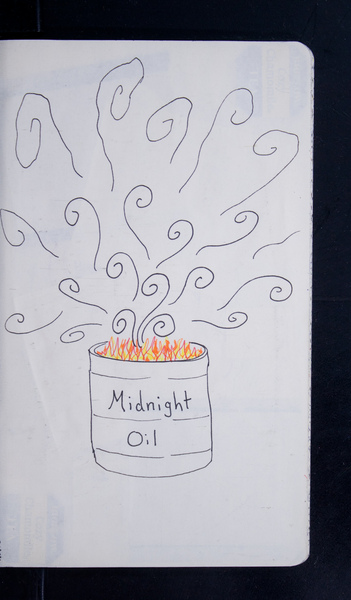 Midnight
Oil